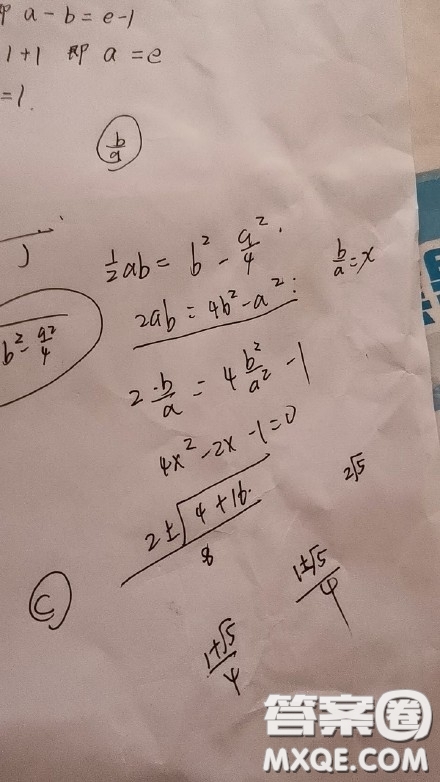 即 a - b = e - 1
1 + 1 即 a = e
= 1.
b/a
1/2 ab = b² - a²/4 .
b/a = x
2ab = 4b² - a² :
b² - a²/4
2 · b/a = 4 b²/a² - 1
4x² - 2x - 1 = 0
2 ± √(4 + 16) / 8
2√5
C
1 ± √5 / 4
1 + √5 / 4
答案圈
MXQE.COM